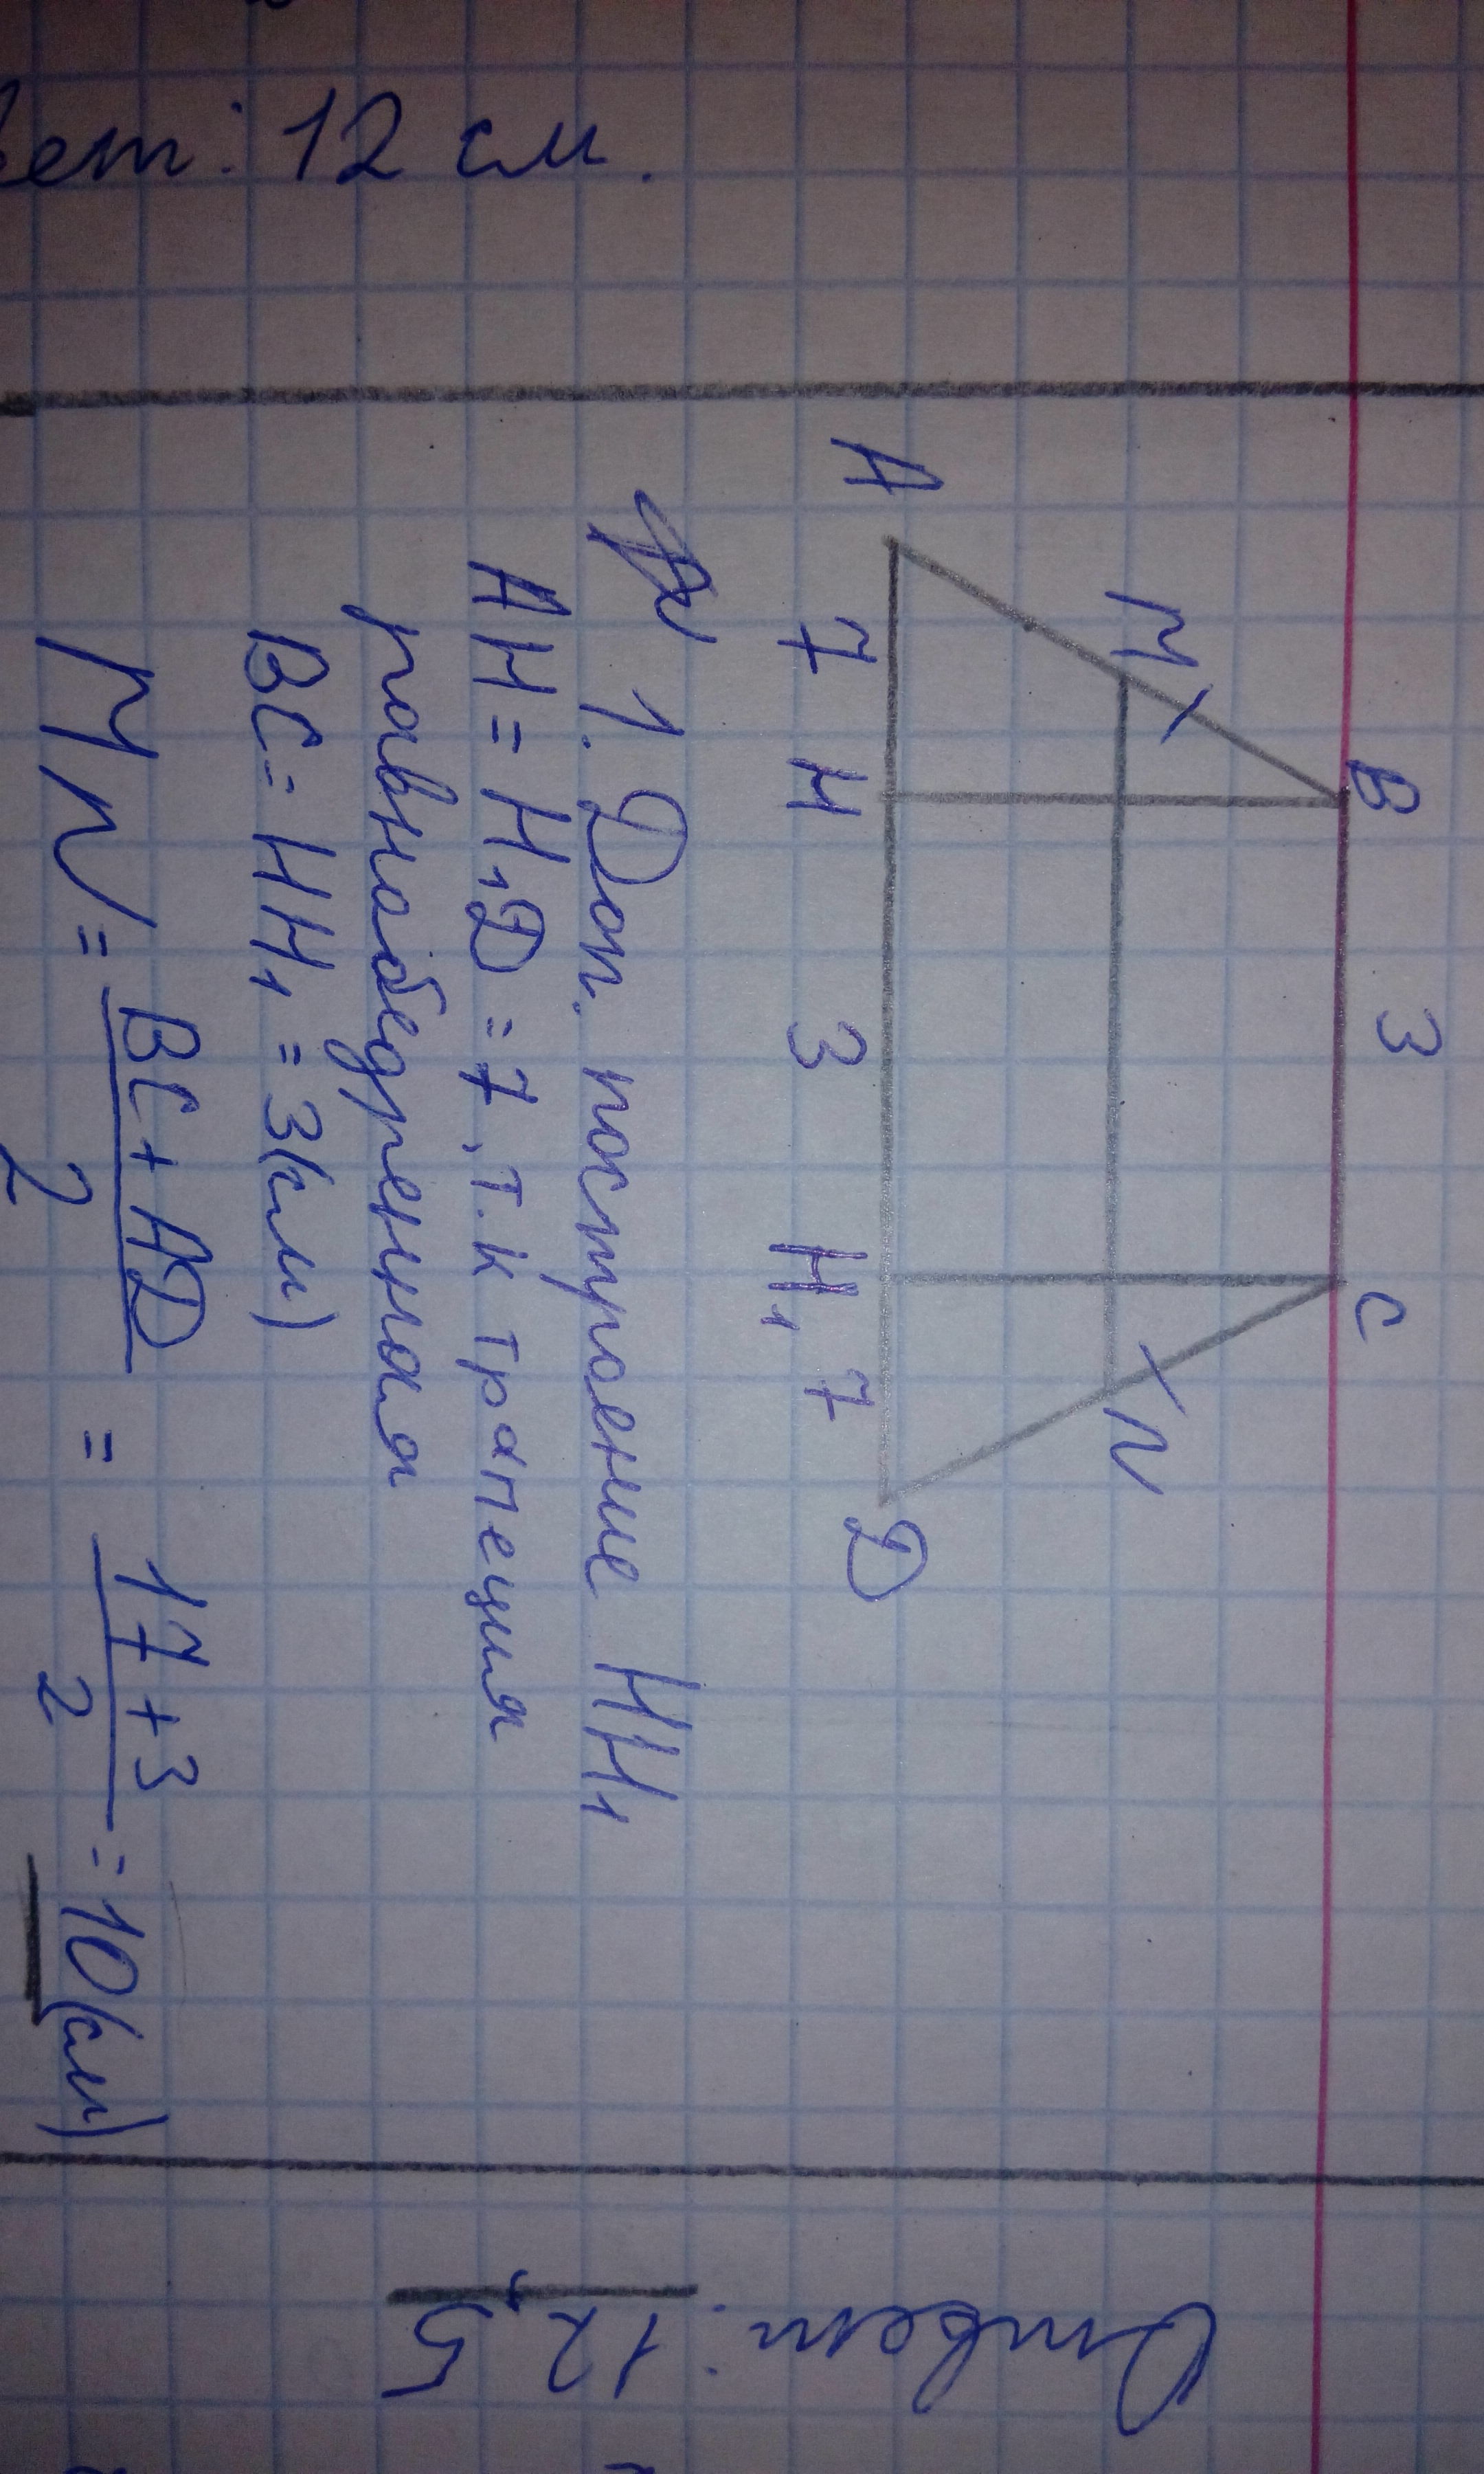 вет: 12 см.
B 3 C
M N
A 7 H 3 H₁ 7 D
1. Доп. построение HH₁
AH = H₁D = 7, т.к трапеция
равнобедренная
BC = HH₁ = 3(см)
MN = BC + AD / 2 = 17 + 3 / 2 = 10(см)
Ответ: 12,5